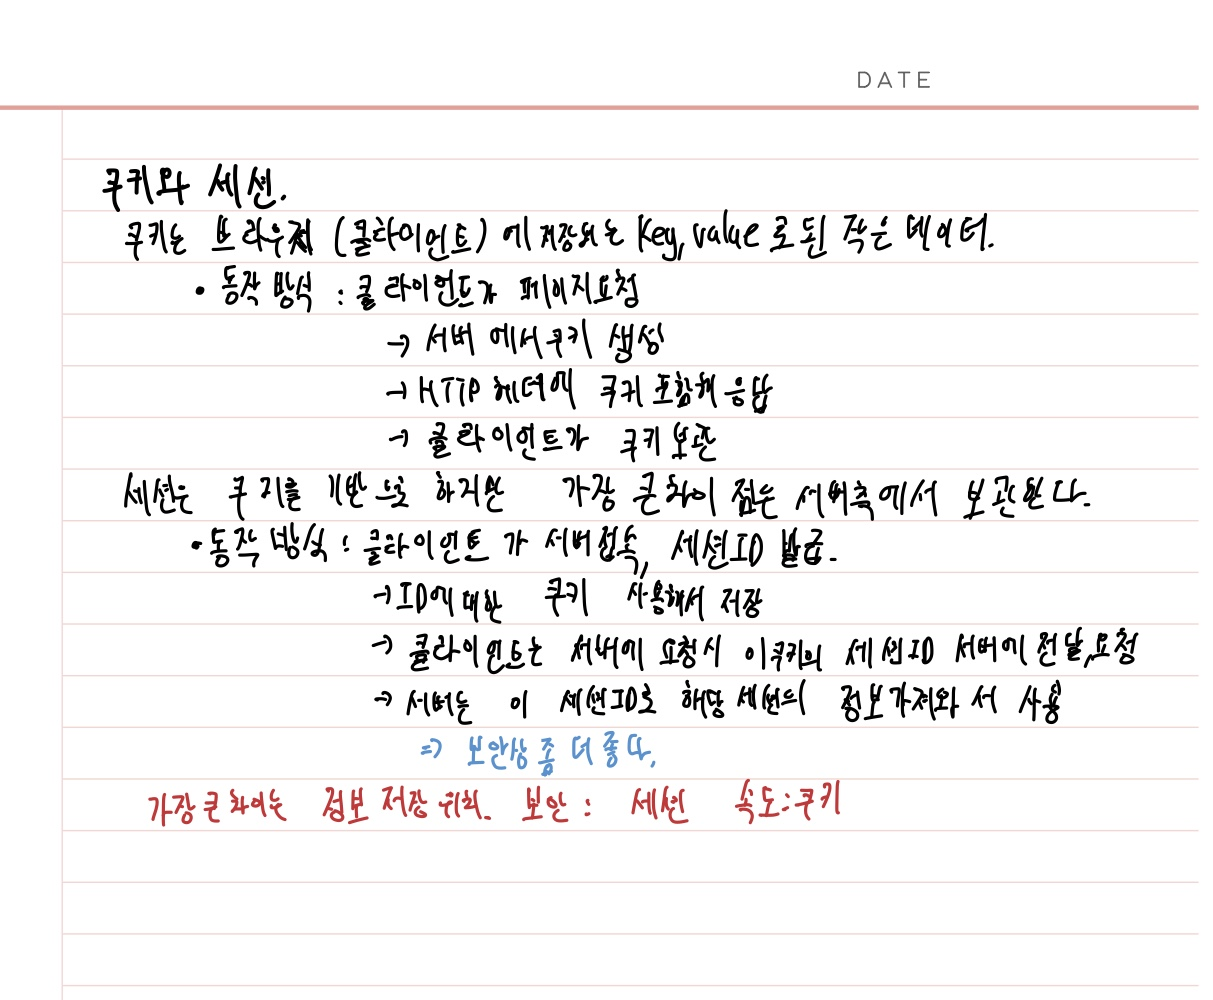 DATE
쿠키와 세션.
쿠키는 브라우저 (클라이언트) 에 저장되는 Key, value 로 된 작은 데이터.
• 동작 방식 : 클라이언트가 페이지요청
→ 서버 에서 쿠키 생성
→ HTTP 헤더에 쿠키 포함해 응답
→ 클라이언트가 쿠키 보관
세션은 쿠키를 기반으로 하지만 가장 큰 차이 점은 서버측에서 보관된다.
• 동작 방식 : 클라이언트 가 서버접속, 세션ID 발급.
→ ID에 대한 쿠키 사용해서 저장
→ 클라이언트는 서버에 요청시 이 쿠키의 세션ID 서버에 전달,요청
→ 서버는 이 세션ID로 해당 세션의 정보가져와 서 사용
⇒ 보안상 좀 더 좋다.
가장 큰 차이는 정보 저장 위치. 보안 : 세션 속도:쿠키